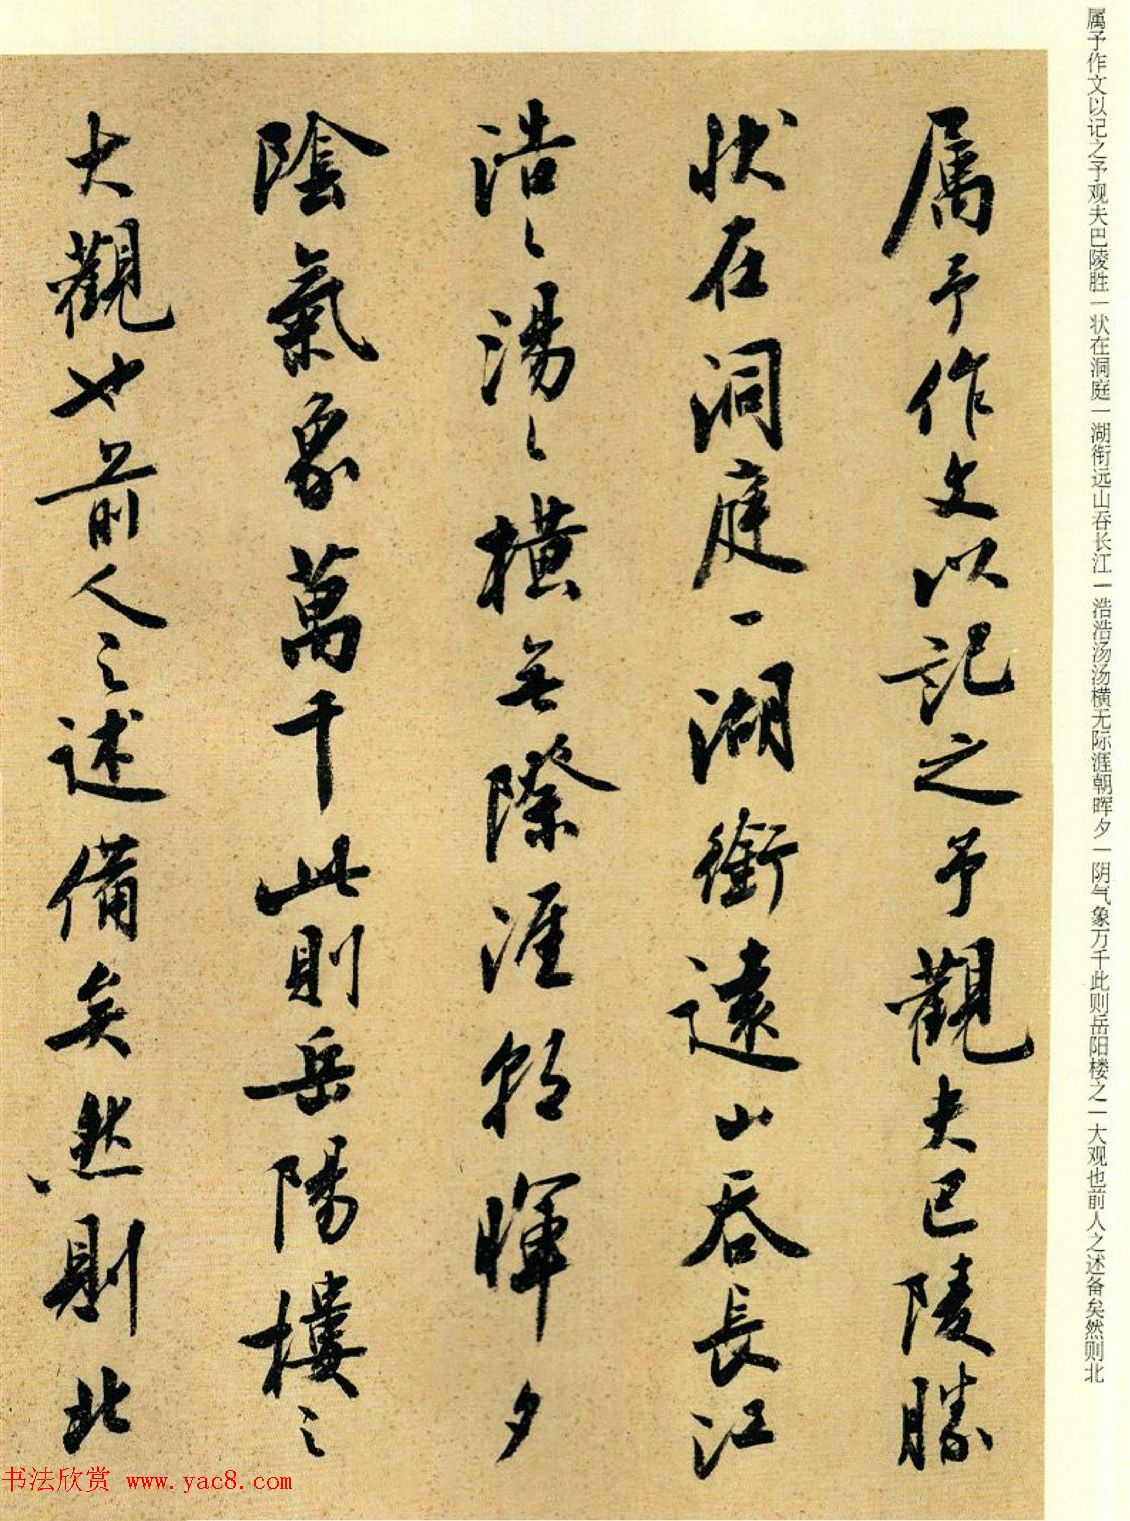 属予作文以记之予观夫巴陵胜一状在洞庭一湖衔远山吞长江一浩浩汤汤横无际涯朝晖夕一阴气象万千此则岳阳楼之一大观也前人之述备矣然则北
属予作文以記之予觀夫巴陵勝
狀在洞庭一湖銜遠山吞長江
浩〻湯〻橫無際涯朝暉夕
陰氣象萬千此則岳陽樓之
大觀也前人之述備矣然則北
书法欣赏 www.yac8.com